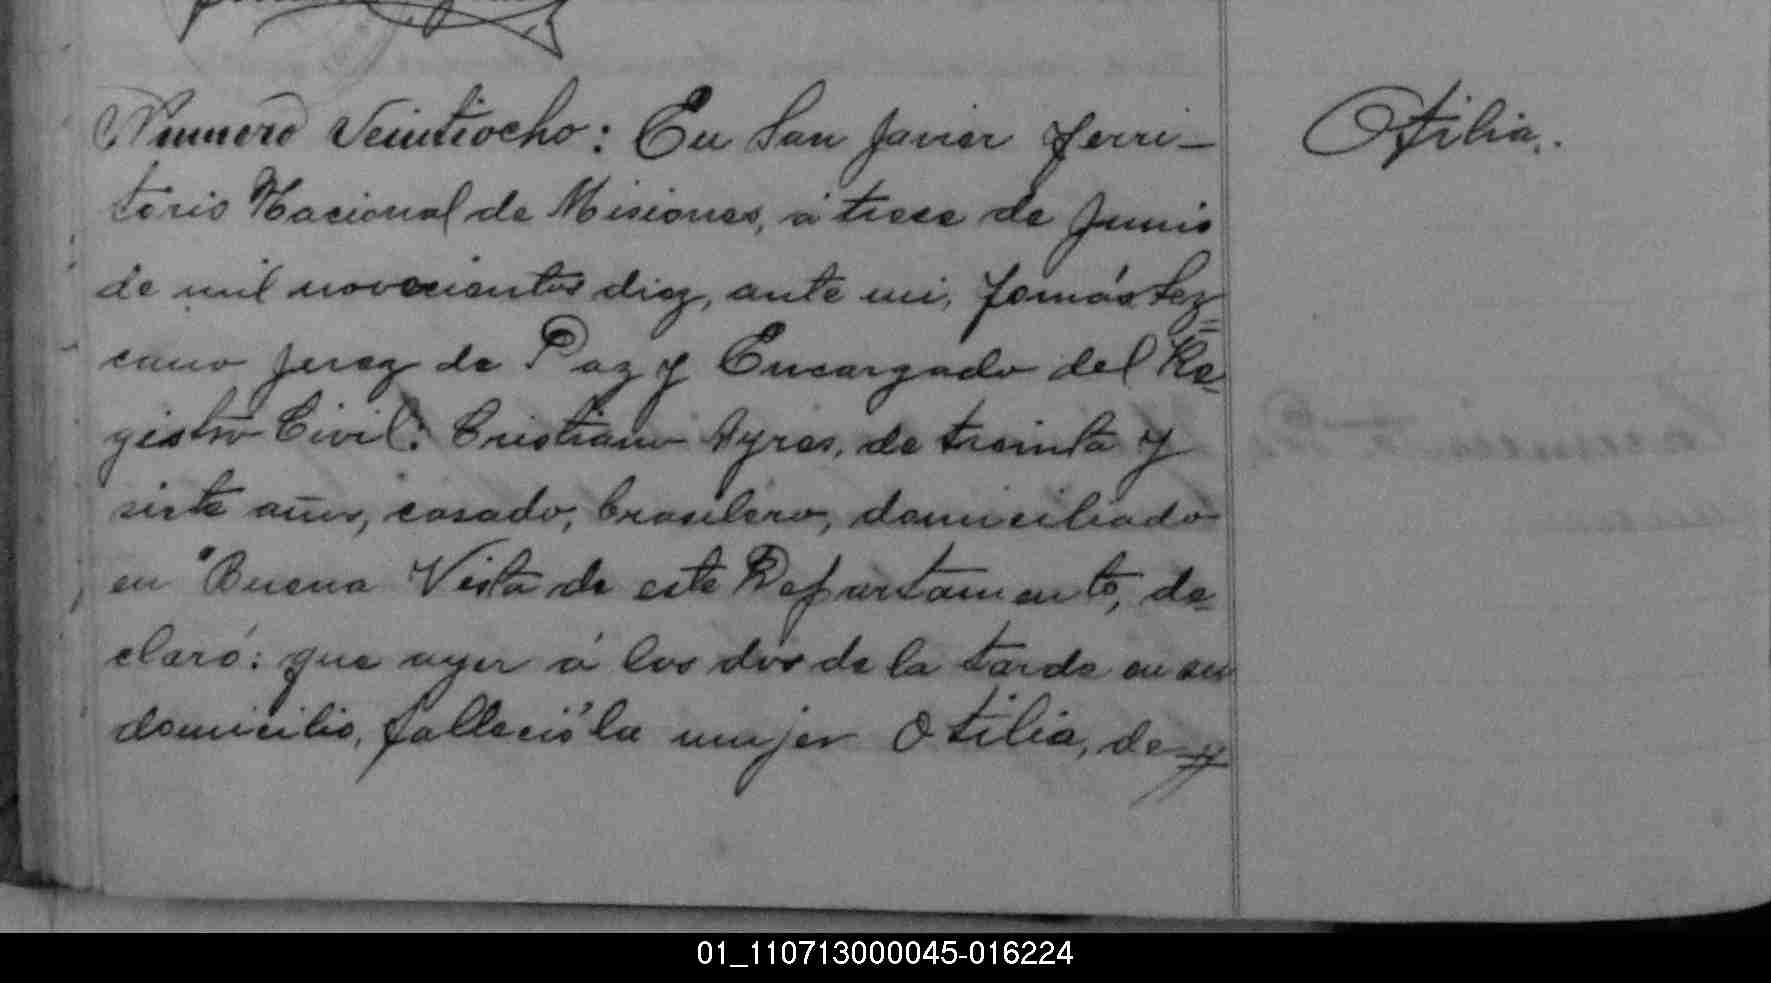 Numero Veintiocho: En San Javier Terri-
torio Nacional de Misiones, á trece de Junio
de mil novecientos diez, ante mi, Tomás Lez=
cano Juez de Paz y Encargado del Re=
gistro Civil: Cristiano Ayres, de treinta y
siete años, casado, brasilero, domiciliado
en Buena Vista de este Departamento, de=
claró: que ayer á las dos de la tarde en su
domicilio, falleció la mujer Otilia, de
Otilia.
01_110713000045-016224